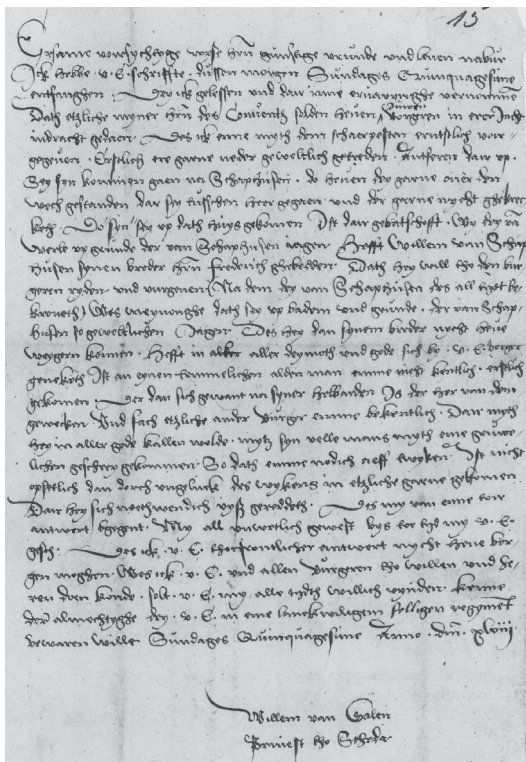 15
Ersame vorsychtyge wyse hern günstige vrunde und leven nabur
Ick hebbe v. E. schriffte dussen morgen Sundages Quinquagesime
entfanghen. Dey ick gelessen und dar inne vernommen
Dath etzliche myner hern des Conventz solden heven Juwen Borgeren in erer Jacht
indracht gedaen. Des ick enne myth dem ernstlich vor-
gegeven. Erstlich ere garne neder geweltlich getreden. Antferen dar up.
Sey syn kommen gaen na Schaphusen. do heven dey garne over den
wech gestanden dar sey tusschen heer gegaen und der garne nycht
keth. Do syn sey up dath huys gekomen Ist dar gebatschafft. Wy dey van
Werle up grunde der van Schaphusen jagen Hefft Willem van Schap
husen synen broder hern Frederich gebedden. Dath hey wyll tho den bur
geren ryden und vurgeven (Na dem dey van Schaphusen des all tyt be
kroneth) Wes meynonghe dath sey up badem und grunde der van Schap-
husen so geweltlichen Jagen. Des hey dan synem broder nycht heve
weygern konnen. Hefft in alder aller deymoth und gode sich by v. E. borger
geneketh Ist an eynen heimmelichen alden man emme nicht kentlich erstlich
gekomen. Der dan sich gewant na syner helbarden Is der her van dem
geweken. Und sach etzliche ander Burger emme bekentlich. Dair myth
hey in aller gode kallen wolde. mytz syn velle mans myth eine gruwe-
lichen geschrey gekommen. So dath emme nodich aeff twyken. Ist nicht
opsetlich dan dorch ungluck des wykens in etzliche garne gekomen
Dar hey sich nothwendich uyss gereddeth. Des my van enne tor
antwort begent. Wy all unwetlich gewest bys tor tyd my v. E.
gesch. Des ick v. E. thor antwert nycht heve ber-
gen moghen. Wes ick v. E. und allen Burgeren tho willen und he-
ren doen konde. solt v. E. my alle tydth willich vynden. kenne
Der almechtyghe dey v. E. in eine lanckwiligem selligen regiment
bewaren wille Sundages Quinquagesime Anno dni. xlviii
Willem van Galen
Prawest tho Scheda